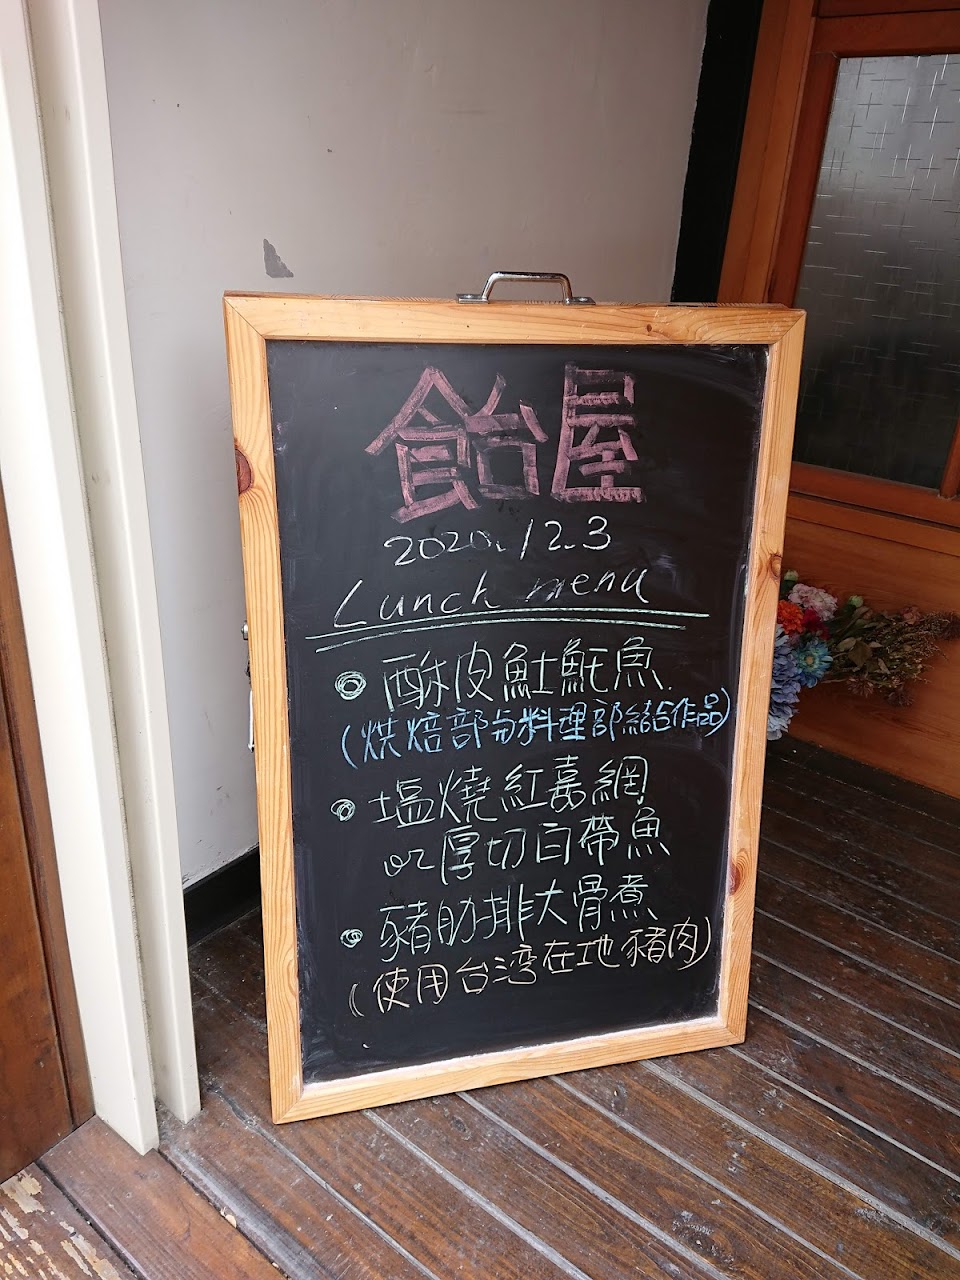 飴屋
2020.12.3
Lunch menu
酥皮魟魠魚
(烘焙部与料理部結合作品)
塩燒紅嘉網
or厚切白帶魚
豬肋排大骨煮
(使用台湾在地豬肉)